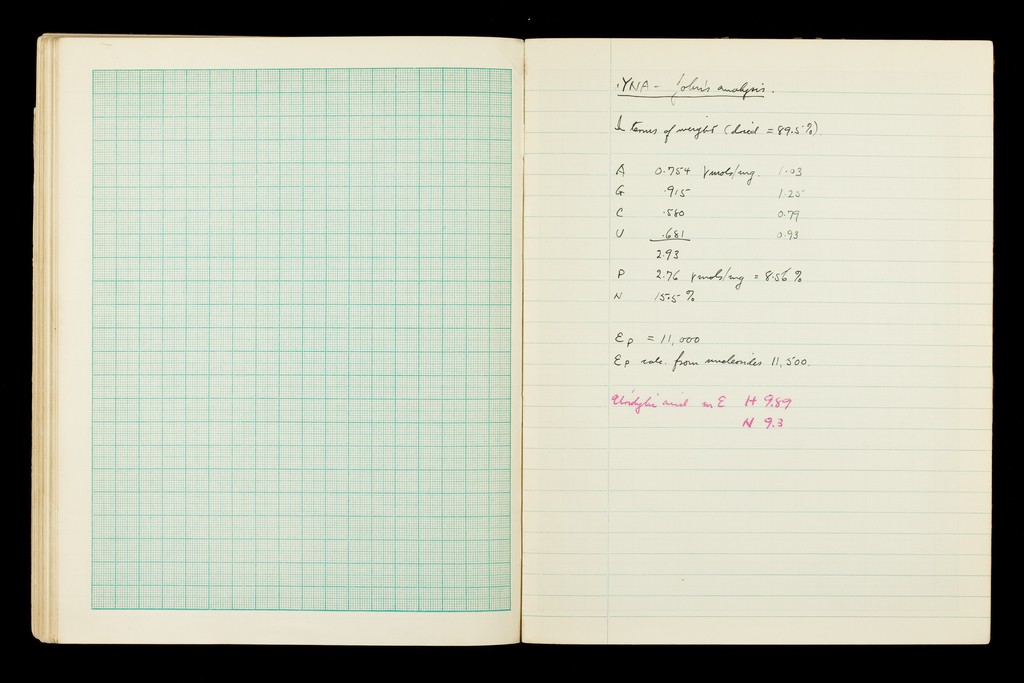 YNA - John's analysis.
In terms of weight (dried = 89.5%)
A 0.754 γmols/mg. 1.03
G .915 1.25
C .580 0.79
U .681 0.93
2.93
P 2.76 γmols/mg = 8.56 %
N 15.5 %
Ep = 11,000
Ep calc. from nucleosides 11,500.
Uridylic acid in E H 9.89
N 9.3